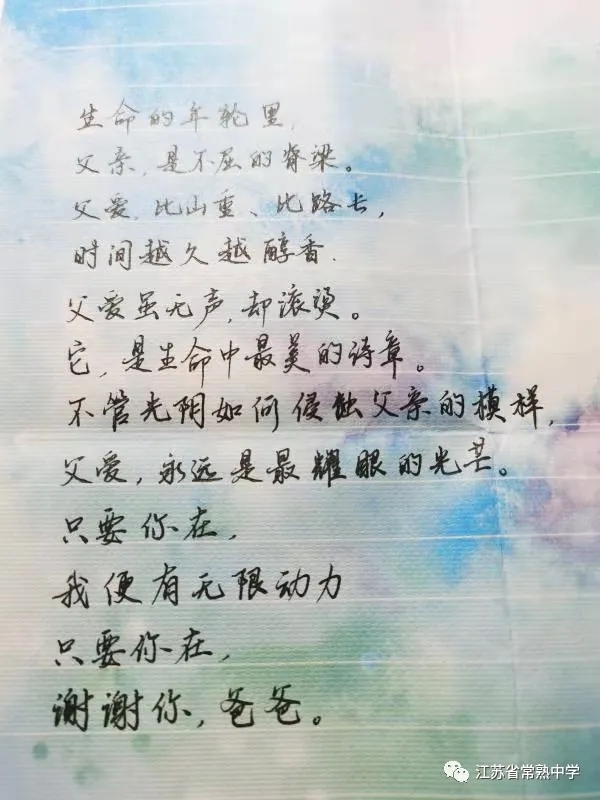 生命的年轮里,
父亲,是不屈的脊梁。
父爱,比山重、比路长,
时间越久越醇香.
父爱虽无声,却滚烫。
它,是生命中最美的诗章。
不管光阴如何侵蚀父亲的模样,
父爱,永远是最耀眼的光芒。
只要你在,
我便有无限动力
只要你在,
谢谢你,爸爸。
江苏省常熟中学